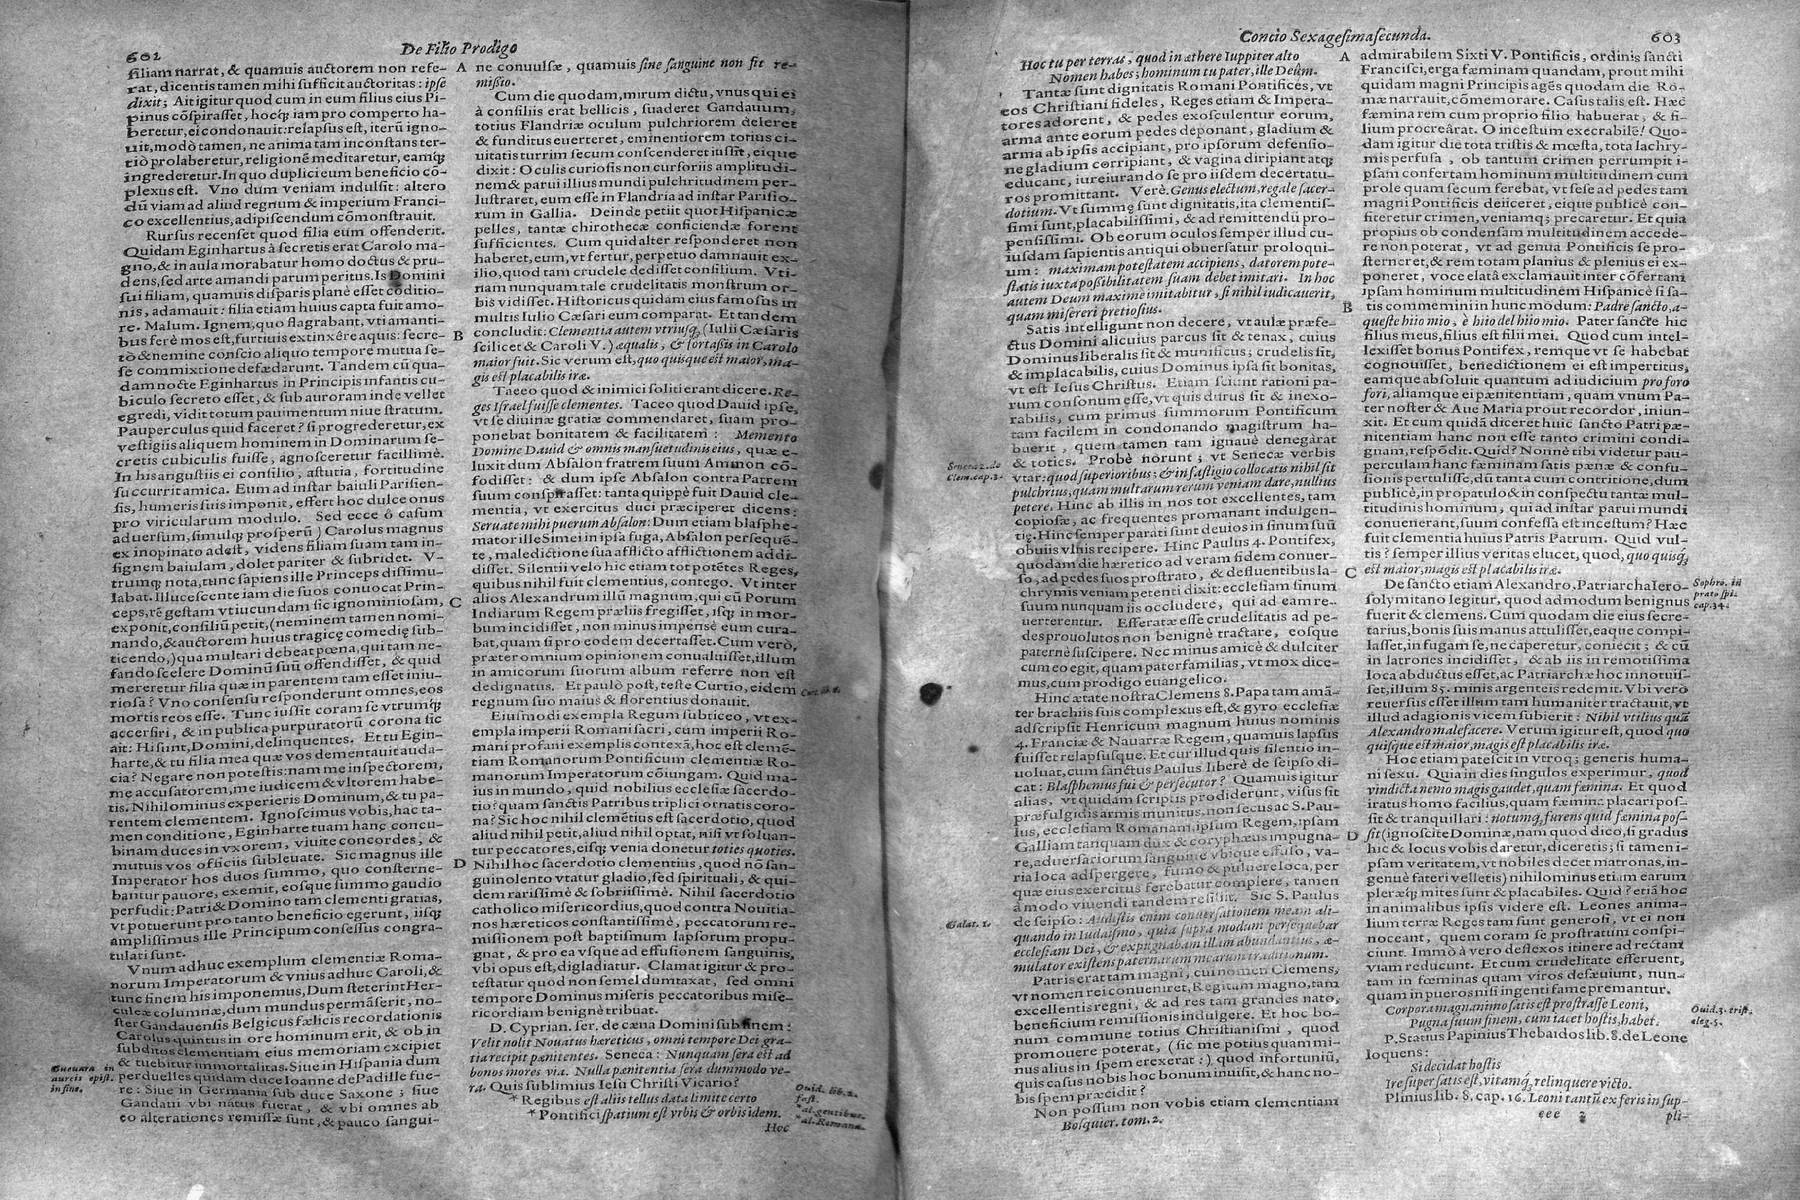 602
De Filio Prodigo
filiam narrat, & quamuis auctorem non refe-
rat, dicentis tamen mihi sufficit auctoritas: ipse
dixit; Ait igitur quod cum in eum filius eius Pi-
pinus cōspirasset, hocq́; iam pro comperto ha-
beretur, ei condonauit: relapsus est, iterū igno-
uit, modò tamen, ne anima tam inconstans ter-
tiò prolaberetur, religionē meditaretur, eamq́;
ingrederetur. In quo duplici eum beneficio cō-
plexus est. Vno dum veniam indulsit: altero
dū viam ad aliud regnum & imperium Franci-
co excellentius, adipiscendum cōmonstrauit.
Rursus recenset quod filia eum offenderit.
Quidam Eginhartus à secretis erat Carolo ma-
gno, & in aula morabatur homo doctus & pru-
dens, sed arte amandi parum peritus. Is Domini
sui filiam, quamuis disparis planè esset cōditio-
nis, adamauit: filia etiam huius capta fuit amo-
re. Malum. Ignem, quo flagrabant, vti amanti-
bus ferè mos est, furtiuis extinxêre aquis: secre-
tò & nemine conscio aliquo tempore mutua se-
se commixtione defædarunt. Tandem cū qua-
dam nocte Eginhartus in Principis infantis cu-
biculo secreto esset, & sub auroram inde vellet
egredi, vidit totum pauimentum niue stratum.
Pauperculus quid faceret? si progrederetur, ex
vestigiis aliquem hominem in Dominarum se-
cretis cubiculis fuisse, agnosceretur facillimè.
In his angustiis ei consilio, astutia, fortitudine
succurrit amica. Eum ad instar baiuli Parisien-
sis, humeris suis imponit, effert hoc dulce onus
pro viricularum modulo. Sed ecce ô casum
aduersum, simulq́; prosperū) Carolus magnus
ex inopinato adest, videns filiam suam tam in-
signem baiulam, dolet pariter & subridet. V-
trumq́; nota, tunc sapiens ille Princeps dissimu-
labat. Illucescente iam die suos conuocat Prin-
ceps, rē gestam vti ucundam sic ignominiosam,
exponit, consiliū petit, (neminem tamen nomi-
nando, & auctorem huius tragicę comedię sub-
ticendo,) qua multari debeat pœna, qui tam ne-
fando scelere Dominū suū offendisset, & quid
mereretur filia quæ in parentem tam esset iniu-
riosa? Vno consensu responderunt omnes, eos
mortis reos esse. Tunc iussit coram se vtrumq́;
accersiri, & in publica purpuratorū corona sic
ait: Hi sunt, Domini, delinquentes. Et tu Egin-
harte, & tu filia mea quæ vos dementauit auda-
cia? Negare non potestis: nam me inspectorem,
me accusatorem, me iudicem & vltorem habe-
tis. Nihilominus experieris Dominum, & tu pa-
rentem clementem. Ignoscimus vobis, hac ta-
men conditione, Eginharte tuam hanc concu-
binam duces in vxorem, viuite concordes, &
mutuis vos officiis subleuate. Sic magnus ille
Imperator hos duos summo, quo consterne-
bantur pauore, exemit, eosque summo gaudio
perfudit: Patri & Domino tam clementi gratias,
vt potuerunt pro tanto beneficio egerunt, iisq́;
amplissimus ille Principum consessus congra-
tulati sunt.
Vnum adhuc exemplum clementiæ Roma-
norum Imperatorum & vnius adhuc Caroli, &
tunc finem his imponemus, Dum steterint Her-
culeæ columnæ, dum mundus permāserit, no-
ster Gandauensis Belgicus fælicis recordationis
Carolus quintus in ore hominum erit, & ob in
subditos clementiam eius memoriam excipiet
& tuebitur immortalitas. Siue in Hispania dum
perduelles quidam duce Ioanne de Padille fue-
re: Siue in Germania sub duce Saxone; siue
Gandaui vbi natus fuerat, & vbi omnes ab
eo alterationes remissæ sunt, & pauco sangui-
Gueuara in
aureis epist.
in fine.
A
B
C
D
ne conuulsæ, quamuis sine sanguine non fit re-
missio.
Cum die quodam, mirum dictu, vnus qui ei
à consiliis erat bellicis, suaderet Gandauum,
totius Flandriæ oculum pulchriorem deleret
& funditus euerteret, eminentiorem totius ci-
uitatis turrim secum conscenderet iussit, eique
dixit: Oculis curiosis non cursoriis amplitudi-
nem & parui illius mundi pulchritudinem per-
lustraret, eum esse in Flandria ad instar Parisio-
rum in Gallia. Deinde petiit quot Hispanicæ
pelles, tantæ chirothecæ conficiendæ forent
sufficientes. Cum quid alter responderet non
haberet, eum, vt fertur, perpetuo damnauit ex-
ilio, quod tam crudele dedisset consilium. Vti-
nam nunquam tale crudelitatis monstrum or-
bis vidisset. Historicus quidam eius famosus in
multis Iulio Cæsari eum comparat. Et tandem
concludit: Clementia autem vtriusq́; (Iulii Cæsaris
scilicet & Caroli V.) æqualis, & fortassis in Carolo
maior fuit. Sic verum est, quo quisque est maior, ma-
gis est placabilis iræ.
Taceo quod & inimici soliti erant dicere. Re-
ges Israel fuisse clementes. Taceo quod Dauid ipse,
vt se diuinæ gratiæ commendaret, suam pro-
ponebat bonitatem & facilitatem: Memento
Domine Dauid & omnis mansuetudinis eius, quæ e-
luxit dum Absalon fratrem suum Ammon cō-
fodisset: & dum ipse Absalon contra Patrem
suum conspirasset: tanta quippè fuit Dauid cle-
mentia, vt exercitus duci præciperet dicens:
Seruate mihi puerum Absalon: Dum etiam blasphe-
mator ille Simei in ipsa fuga, Absalon persequē-
te, maledictione sua afflicto afflictionem addi-
disset. Silentii velo hic etiam tot potētes Reges,
quibus nihil fuit clementius, contego. Vt inter
alios Alexandrum illū magnum, qui cū Porum
Indiarum Regem præliis fregisset, isq́; in mor-
bum incidisset, non minus impensè eum cura-
bat, quam si pro eodem decertasset. Cum verò,
præter omnium opinionem conualuisset, illum
in amicorum suorum album referre non est
dedignatus. Et paulò post, teste Curtio, eidem
regnum suo maius & florentius donauit.
Eiusmodi exempla Regum subticeo, vt ex-
empla imperii Romani sacri, cum imperii Ro-
mani profani exemplis contexā, hoc est clemē-
tiam Romanorum Pontificum clementiæ Ro-
manorum Imperatorum cōiungam. Quid ma-
ius in mundo, quid nobilius ecclesiæ sacerdo-
tio? quam sanctis Patribus triplici ornatis coro-
na? Sic hoc nihil clemētius est sacerdotio, quod
aliud nihil petit, aliud nihil optat, nisi vt soluan-
tur peccatores, eisq́; venia donetur toties quoties.
Nihil hoc sacerdotio clementius, quod nō san-
guinolento vtatur gladio, sed spirituali, & qui-
dem rarissimè & sobriissimè. Nihil sacerdotio
catholico misericordius, quod contra Nouitia-
nos hæreticos constantissimè, peccatorum re-
missionem post baptismum lapsorum propu-
gnat, & pro ea vsque ad effusionem sanguinis,
vbi opus est, digladiatur. Clamat igitur & pro-
testatur quod non semel dumtaxat, sed omni
tempore Dominus miseris peccatoribus mise-
ricordiam benignè tribuat.
D. Cyprian. ser. de cæna Domini sub finem:
Velit nolit Nouatus hæreticus, omni tempore Dei gra-
tia recipit pænitentes. Seneca: Nunquam sera est ad
bonos mores via. Nulla pænitentia sera dummodo ve-
ra. Quis sublimius Iesu Christi Vicario?
* Regibus est aliis tellus data limite certo
* Pontifici spatium est vrbis & orbis idem.
Hoc
Ouid. lib. 2.
fast.
* al. gentibus.
* al. Romana.
Concio Sexagesimasecunda.
603
Hoc tu per terras, quod in æthere Iuppiter alto
Nomen habes; hominum tu pater, ille Deûm.
Tantæ sunt dignitatis Romani Pontifices, vt
eos Christiani fideles, Reges etiam & Impera-
tores adorent, & pedes exosculentur eorum,
arma ante eorum pedes deponant, gladium &
arma ab ipsis accipiant, pro ipsorum defensio-
ne gladium corripiant, & vagina diripiant atq́;
educant, iureiurando se pro iisdem decertatu-
ros promittant. Verè. Genus electum, regale sacer-
dotium. Vt summę sunt dignitatis, ita clementis-
simi sunt, placabilissimi, & ad remittendū pro-
pensissimi. Ob eorum oculos semper illud cu-
iusdam sapientis antiqui obuersatur proloqui-
um: maximam potestatem accipiens, datorem pote-
statis iuxta possibilitatem suam debet imitari. In hoc
autem Deum maximè imitabitur, si nihil iudicauerit,
quam misereri pretiosius.
Satis intelligunt non decere, vt aulæ præfe-
ctus Domini alicuius parcus sit & tenax, cuius
Dominus liberalis sit & munificus; crudelis sit,
& implacabilis, cuius Dominus ipsa sit bonitas,
vt est Iesus Christus. Etiam sciunt rationi pa-
rum consonum esse, vt quis durus sit & inexo-
rabilis, cum primus summorum Pontificum
tam facilem in condonando magistrum ha-
buerit, quem tamen tam ignauè denegârat
& toties. Probè norunt; vt Senecæ verbis
vtar: quod superioribus; & in fastigio collocatis nihil sit
pulchrius, quam multarum rerum veniam dare, nullius
petere. Hinc ab illis in nos tot excellentes, tam
copiosæ, ac frequentes promanant indulgen-
tię. Hinc semper parati sunt deuios in sinum suū
obuiis vlnis recipere. Hinc Paulus 4. Pontifex,
quodam die hæretico ad veram fidem conuer-
so, ad pedes suos prostrato, & defluentibus la-
chrymis veniam petenti dixit: ecclesiam sinum
suum nunquam iis occludere, qui ad eam re-
uerterentur. Efferatæ esse crudelitatis ad pe-
des prouolutos non benignè tractare, eosque
paternè suscipere. Nec minus amicè & dulciter
cum eo egit, quam paterfamilias, vt mox dice-
mus, cum prodigo euangelico.
Hinc ætate nostra Clemens 8. Papa tam amā-
ter brachiis suis complexus est, & gyro ecclesiæ
adscripsit Henricum magnum huius nominis
4. Franciæ & Nauarræ Regem, quamuis lapsus
fuisset relapsusque. Et cur illud quis silentio in-
uoluat, cum sanctus Paulus liberè de seipso di-
cat: Blasphemus fui & persecutor? Quamuis igitur
alias, vt quidam scriptis prodiderunt, visus sit
præfulgidis armis munitus, non secus ac S. Pau-
lus, ecclesiam Romanam, ipsum Regem, ipsam
Galliam tanquam dux & coryphæus impugna-
re, aduersariorum sanguine vbique effuso, va-
ria loca adspergere, fumo & puluere loca, per
quæ eius exercitus ferebatur complere, tamen
à modo viuendi tandem resilit. Sic S. Paulus
de seipso: Audistis enim conuersationem meam ali-
quando in Iudaismo, quia supra modum persequebar
ecclesiam Dei, & expugnabam illam abundantius, æ-
mulator existens paternarum mearum traditionum.
Patris erat tam magni, cui nomen Clemens,
vt nomen rei conueniret, Regitum magno, tam
excellentis regni, & ad res tam grandes nato,
beneficium remissionis indulgere. Et hoc bo-
num commune totius Christianismi, quod
promouere poterat, (sic me potius quam mi-
nus alius in spem erexerat:) quod infortuniū,
quis casus nobis hoc bonum inuisit, & hanc no-
bis spem præcidit?
Non possum non vobis etiam clementiam
Bosquier. tom. 2.
Seneca 2. de
Clem. cap. 3.
Galat. 1.
A
B
C
D
admirabilem Sixti V. Pontificis, ordinis sancti
Francisci, erga fæminam quandam, prout mihi
quidam magni Principis agēs quodam die Ro-
mæ narrauit, cōmemorare. Casus talis est. Hæc
fæmina rem cum proprio filio habuerat, & fi-
lium procreârat. O incestum execrabile! Quo-
dam igitur die tota tristis & mœsta, tota lachry-
mis perfusa, ob tantum crimen perrumpit i-
psam confertam hominum multitudinem cum
prole quam secum ferebat, vt sese ad pedes tam
magni Pontificis deiiceret, eique publicè con-
fiteretur crimen, veniamq́; precaretur. Et quia
propius ob condensam multitudinem accede-
re non poterat, vt ad genua Pontificis se pro-
sterneret, & rem totam planius & plenius ei ex-
poneret, voce elatâ exclamauit inter cōfertam
ipsam hominum multitudinem Hispanicè si sa-
tis commemini in hunc modum: Padre sancto, a-
queste hiio mio, è hiio del hiio mio. Pater sancte hic
filius meus, filius est filii mei. Quod cum intel-
lexisset bonus Pontifex, remque vt se habebat
cognouisset, benedictionem ei est impertitus,
eamque absoluit quantum ad iudicium pro foro
fori, aliamque ei pænitentiam, quam vnum Pa-
ter noster & Aue Maria prout recordor, iniun-
xit. Et cum quidā diceret huic sancto Patri pæ-
nitentiam hanc non esse tanto crimini condi-
gnam, respōdit. Quid? Nonnè tibi videtur pau-
perculam hanc fæminam satis pænæ & confu-
sionis pertulisse, dū tanta cum contritione, dum
publicè, in propatulo & in conspectu tantæ mul-
titudinis hominum, qui ad instar parui mundi
conuenerant, suum confessa est incestum? Hæc
fuit clementia huius Patris Patrum. Quid vul-
tis? semper illius veritas elucet, quod, quo quisq́;
est maior, magis est placabilis iræ.
De sancto etiam Alexandro, Patriarcha Iero-
solymitano legitur, quod admodum benignus
fuerit & clemens. Cum quodam die eius secre-
tarius, bonis suis manus attulisset, eaque compi-
lasset, in fugam se, ne caperetur, coniecit; & cū
in latrones incidisset, & ab iis in remotissima
loca abductus esset, ac Patriarchæ hoc innotuis-
set, illum 85. minis argenteis redemit. Vbi verò
reuersus esset illum tam humaniter tractauit, vt
illud adagionis vicem subierit: Nihil vtilius quā
Alexandro malefacere. Verum igitur est, quod quo
quisque est maior, magis est placabilis iræ.
Hoc etiam patescit in vtroq́; generis huma-
ni sexu. Quia in dies singulos experimur, quod
vindicta nemo magis gaudet, quam fæmina. Et quod
iratus homo facilius, quam fæmina placari pos-
sit & tranquillari: notumq́; furens quid fæmina pos-
sit (ignoscite Dominæ, nam quod dico, si gradus
hic & locus vobis daretur, diceretis; si tamen i-
psam veritatem, vt nobiles decet matronas, in-
genuè fateri velletis) nihilominus etiam earum
pleræq́; mites sunt & placabiles. Quid? etiā hoc
in animalibus ipsis videre est. Leones anima-
lium terræ Reges tam sunt generosi, vt ei non
noceant, quem coram se prostratum conspi-
ciunt. Immò à vero deflexos itinere ad rectam
viam reducunt. Et cum crudelitate efferuent,
tam in fœminas quam viros desæuiunt, nun-
quam in pueros nisi ingenti fame premantur.
Corpora magnanimo satis est prostrasse Leoni,
Pugna suum finem, cum iacet hostis, habet.
P. Statius Papinius Thebaidos lib. 8. de Leone
loquens:
Si decidat hostis
Ire super satis est, vitamq́; relinquere victo.
Plinius lib. 8. cap. 16. Leoni tantū ex feris in sup-
eee 2
pli-
Sophro. in
prato spi.
cap. 34.
Ouid. 3. trist.
eleg. 5.